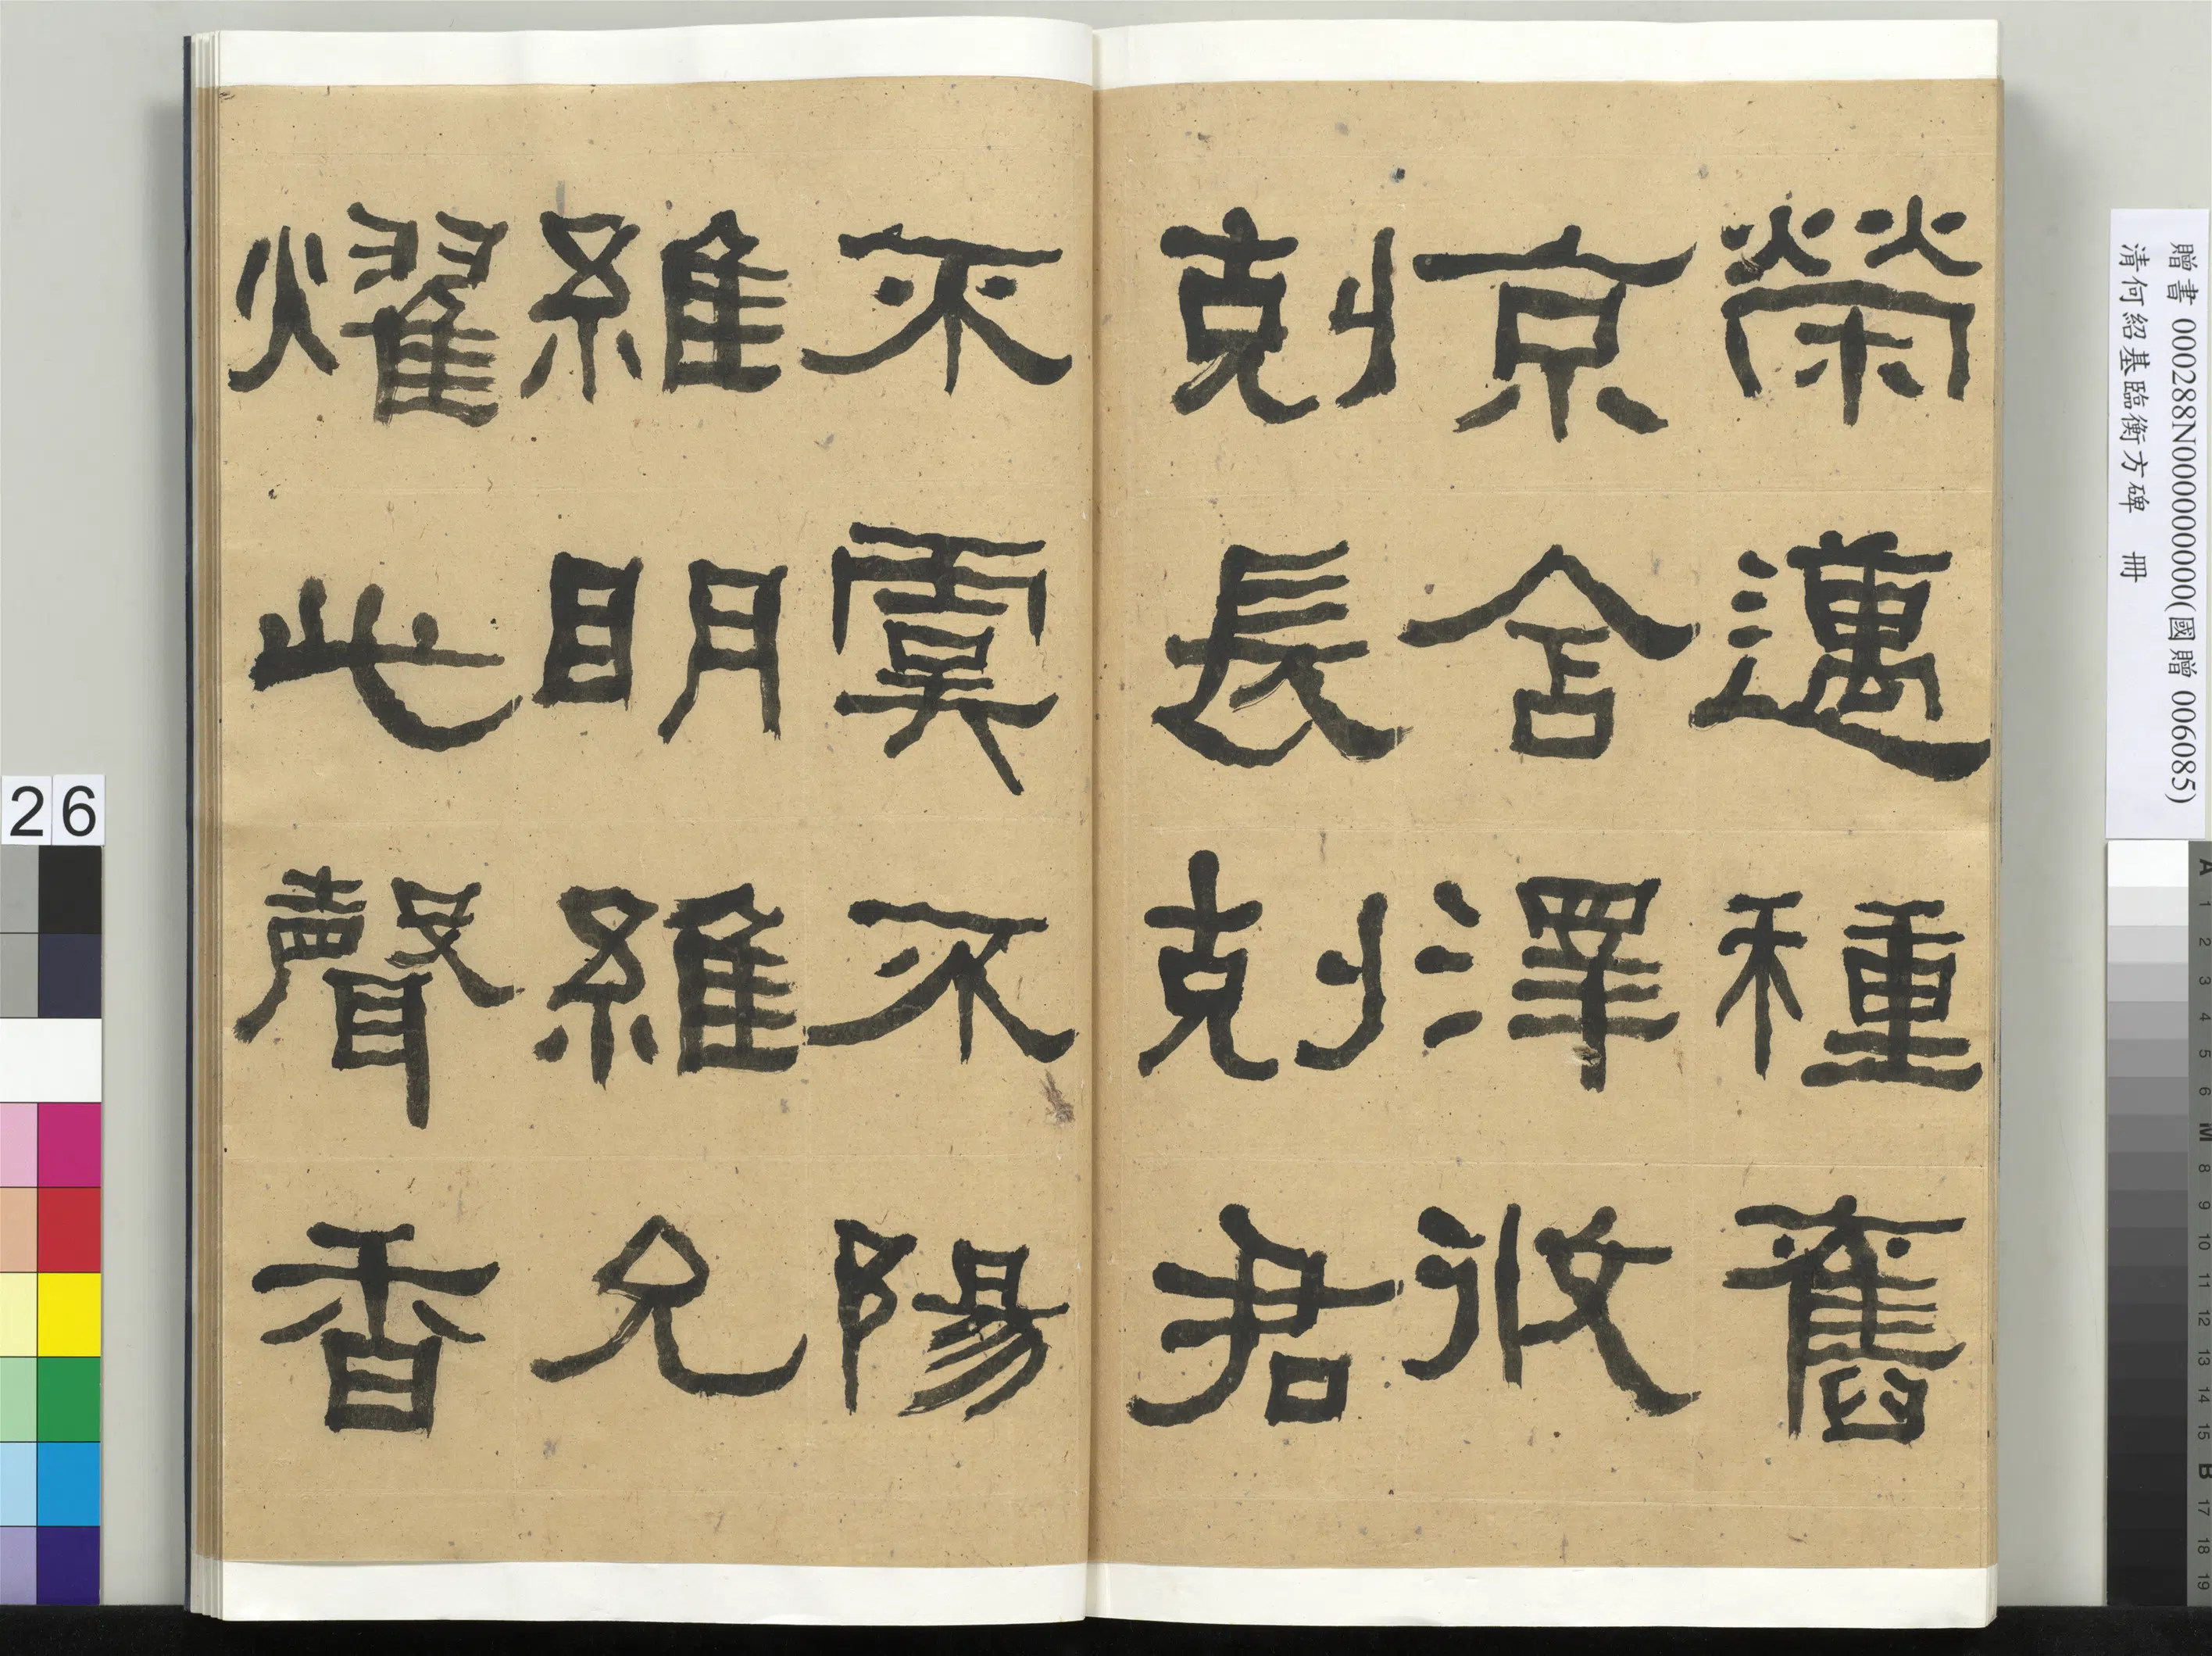 榮邁種舊
京舍澤攸
剋長剋君
不虞不陽
維明維允
燿此聲香
贈書 000288N000000000(國贈 006085)
清何紹基臨衡方碑 冊
26
A 1 2 3 4 5 6 M 8 9 10 11 12 13 14 15 B 17 18 19